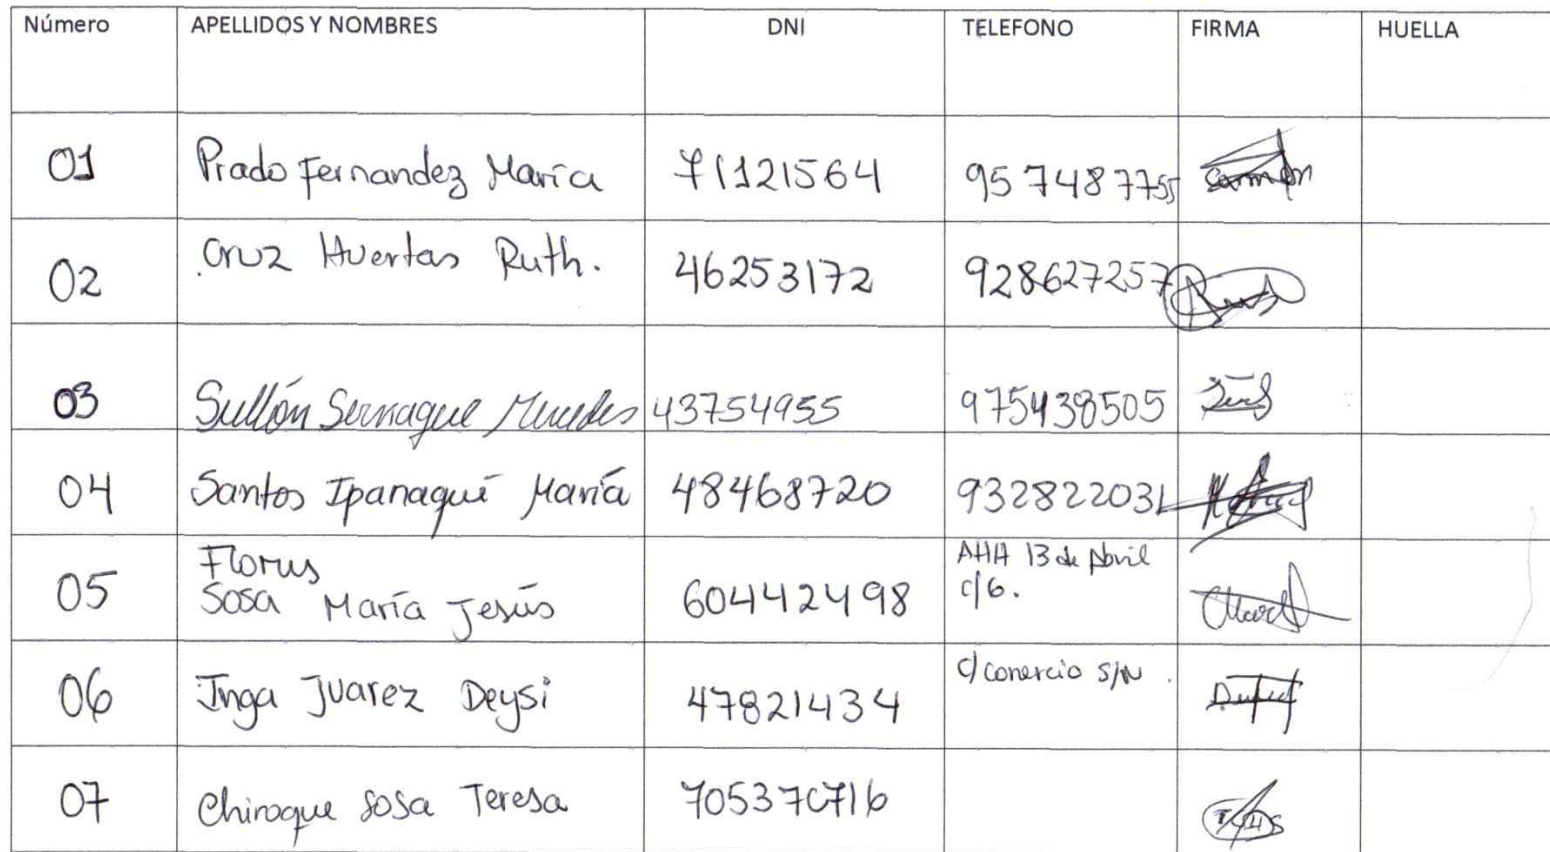 Número APELLIDOS Y NOMBRES DNI TELEFONO FIRMA HUELLA
01 Prado Fernandez María 71121564 957487755
02 Cruz Huertas Ruth. 46253172 928627257
03 Sullón Sernaque Mercedes 43754955 975438505
04 Santos Ipanaqué María 48468720 932822031
Flores
Sosa
05 María Jesús 60442498 AHH 13 de Abril
c/6.
06 Inga Juarez Deysi 47821434 c/ conercio S/N.
07 Chiroque Sosa Teresa